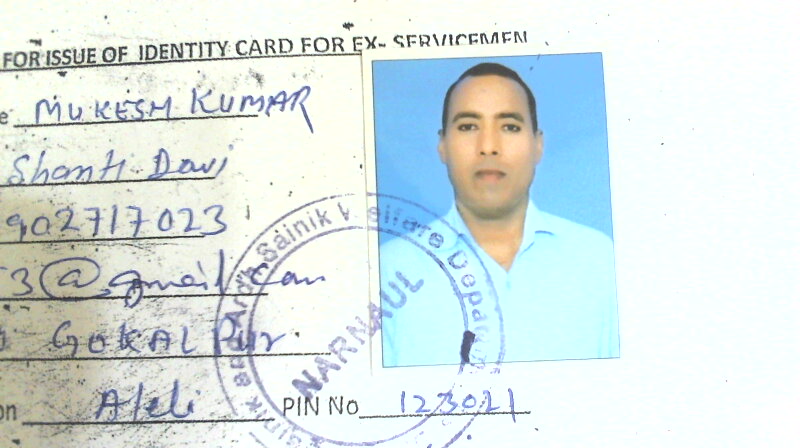 FOR ISSUE OF IDENTITY CARD FOR EX- SERVICEMEN
e MUKESH KUMAR
Shanti Davi
902717023
3@gmail.com
GOKALPUR
on Ateli PIN No 123021
Sainik Welfare Depart
NARNAUL